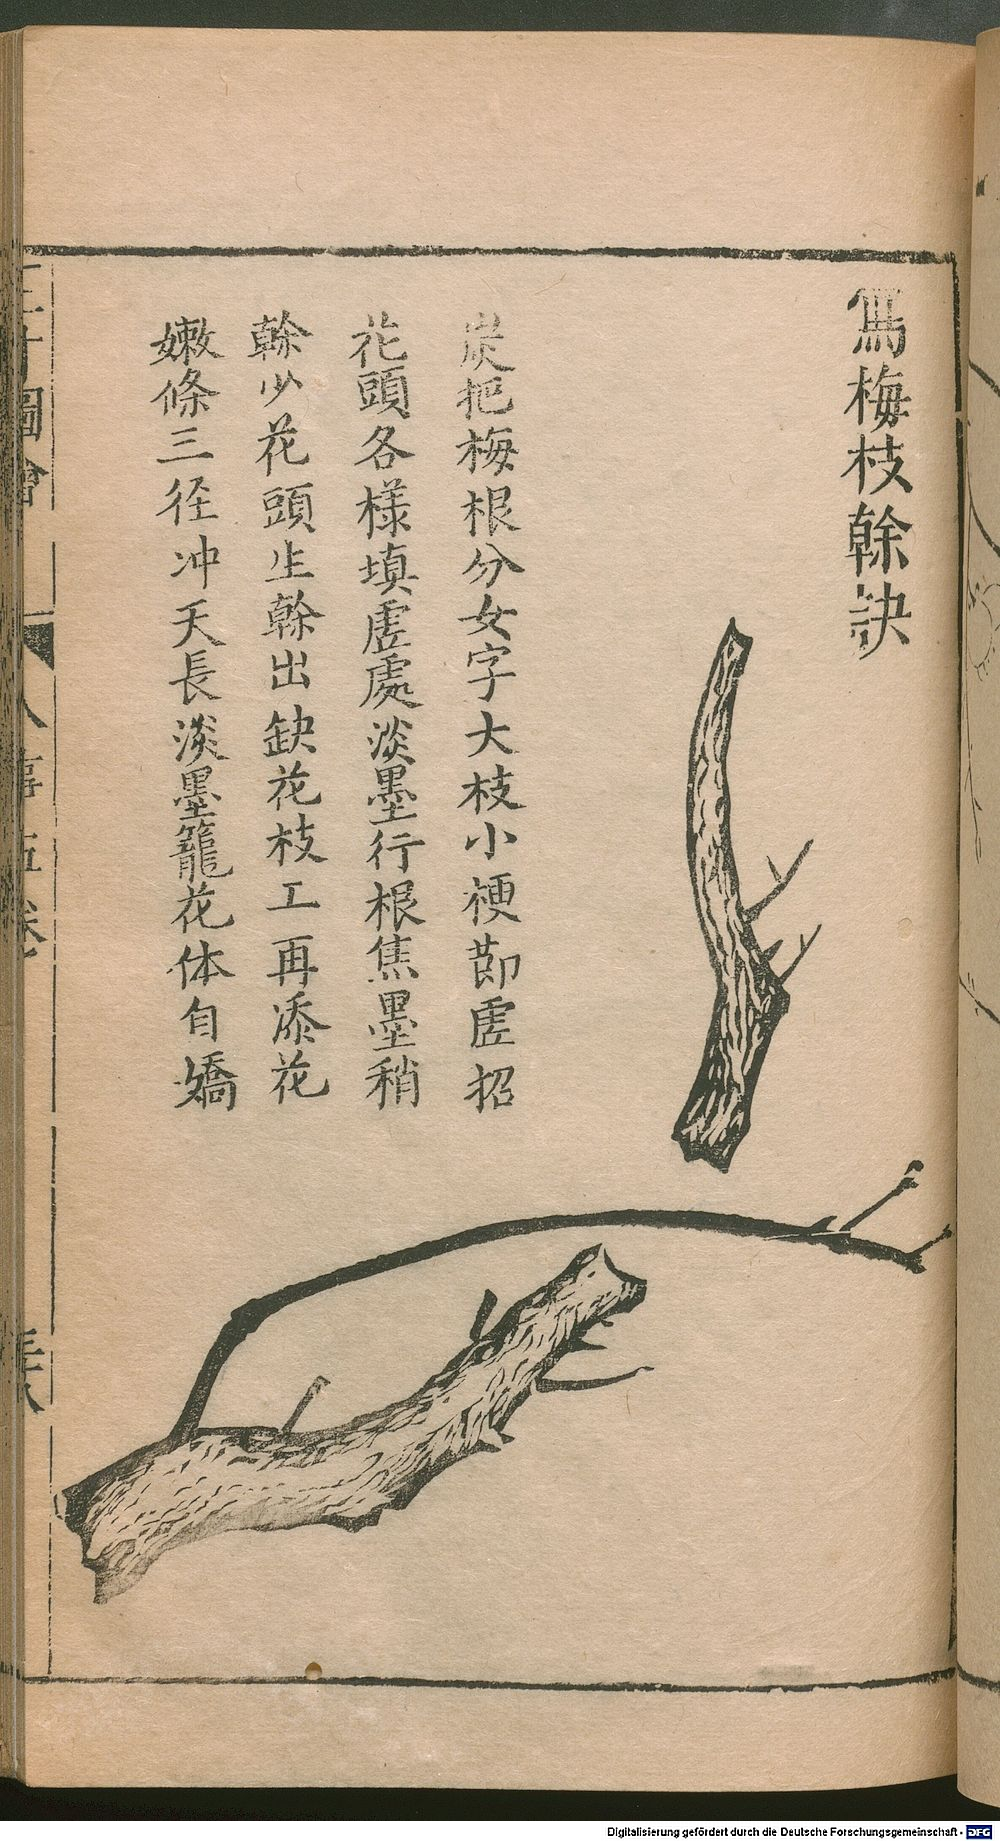 寫梅枝榦訣
炭把梅根分女字大枝小梗莭虗招
花頭各様填虗處淡墨行根焦墨稍
榦少花頭生榦出缺花枝工再添花
嫩條三径冲天長淡墨籠花体自嬌
三才圖會
人事五卷
三十八
Digitalisierung gefördert durch die Deutsche Forschungsgemeinschaft - DFG